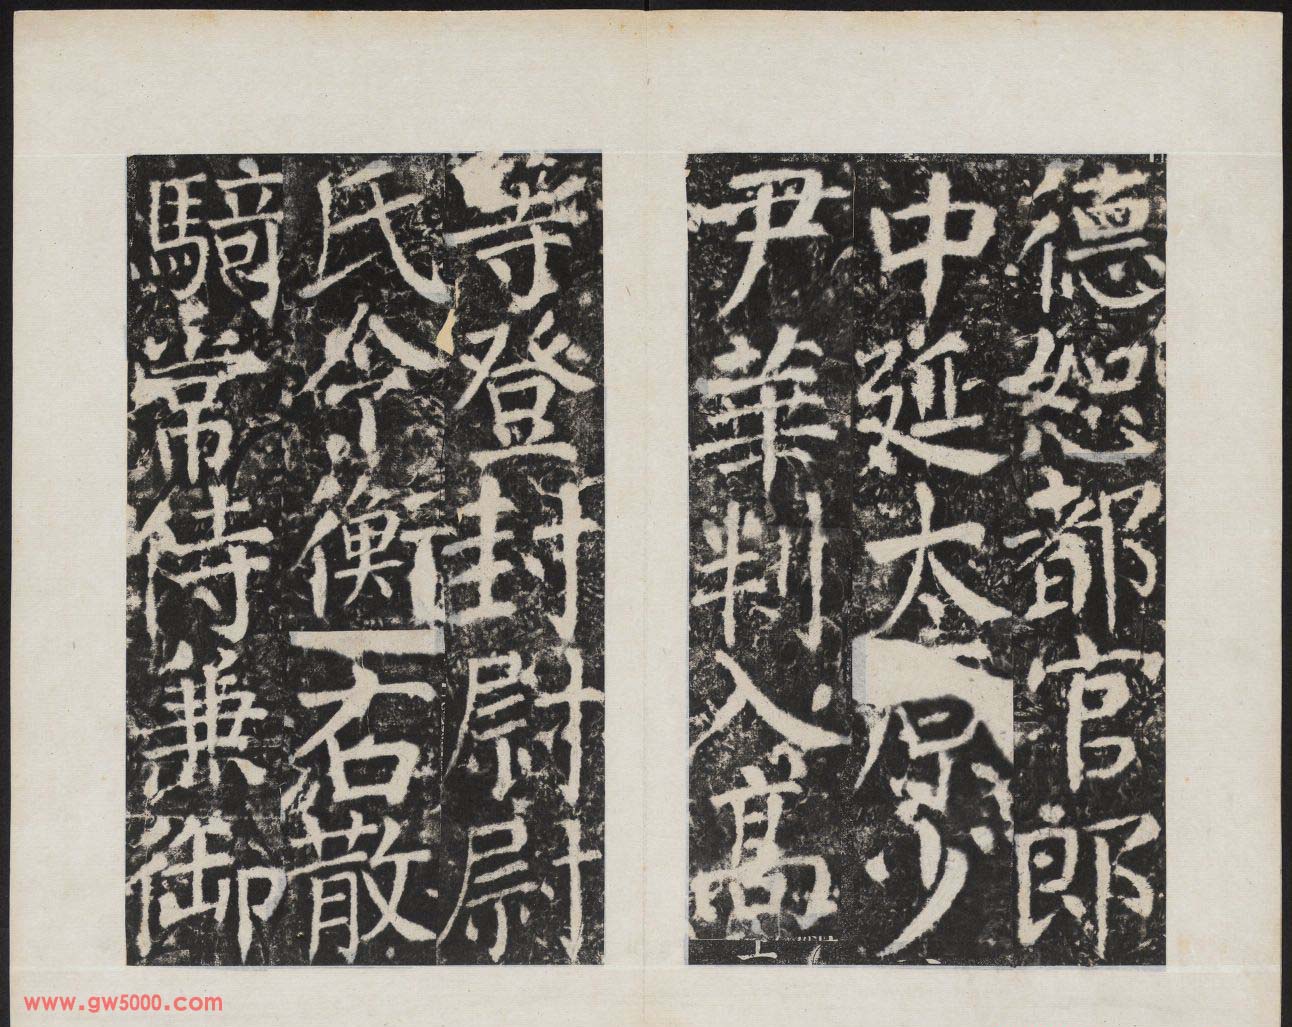 德恕都官郎
中延太原少
尹華判入高
等登封尉尉
氏令衡右散
騎常侍兼御
www.gw5000.com